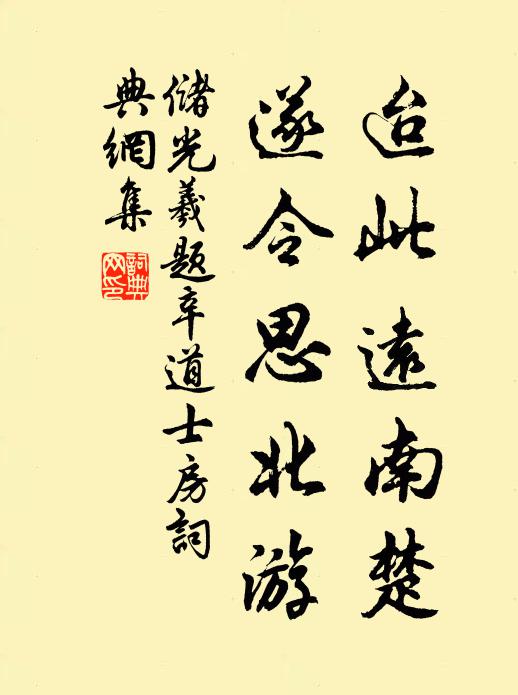 迨此遠南楚
遂令思北游
儲光羲題辛道士房詞
典網集
詞典網印